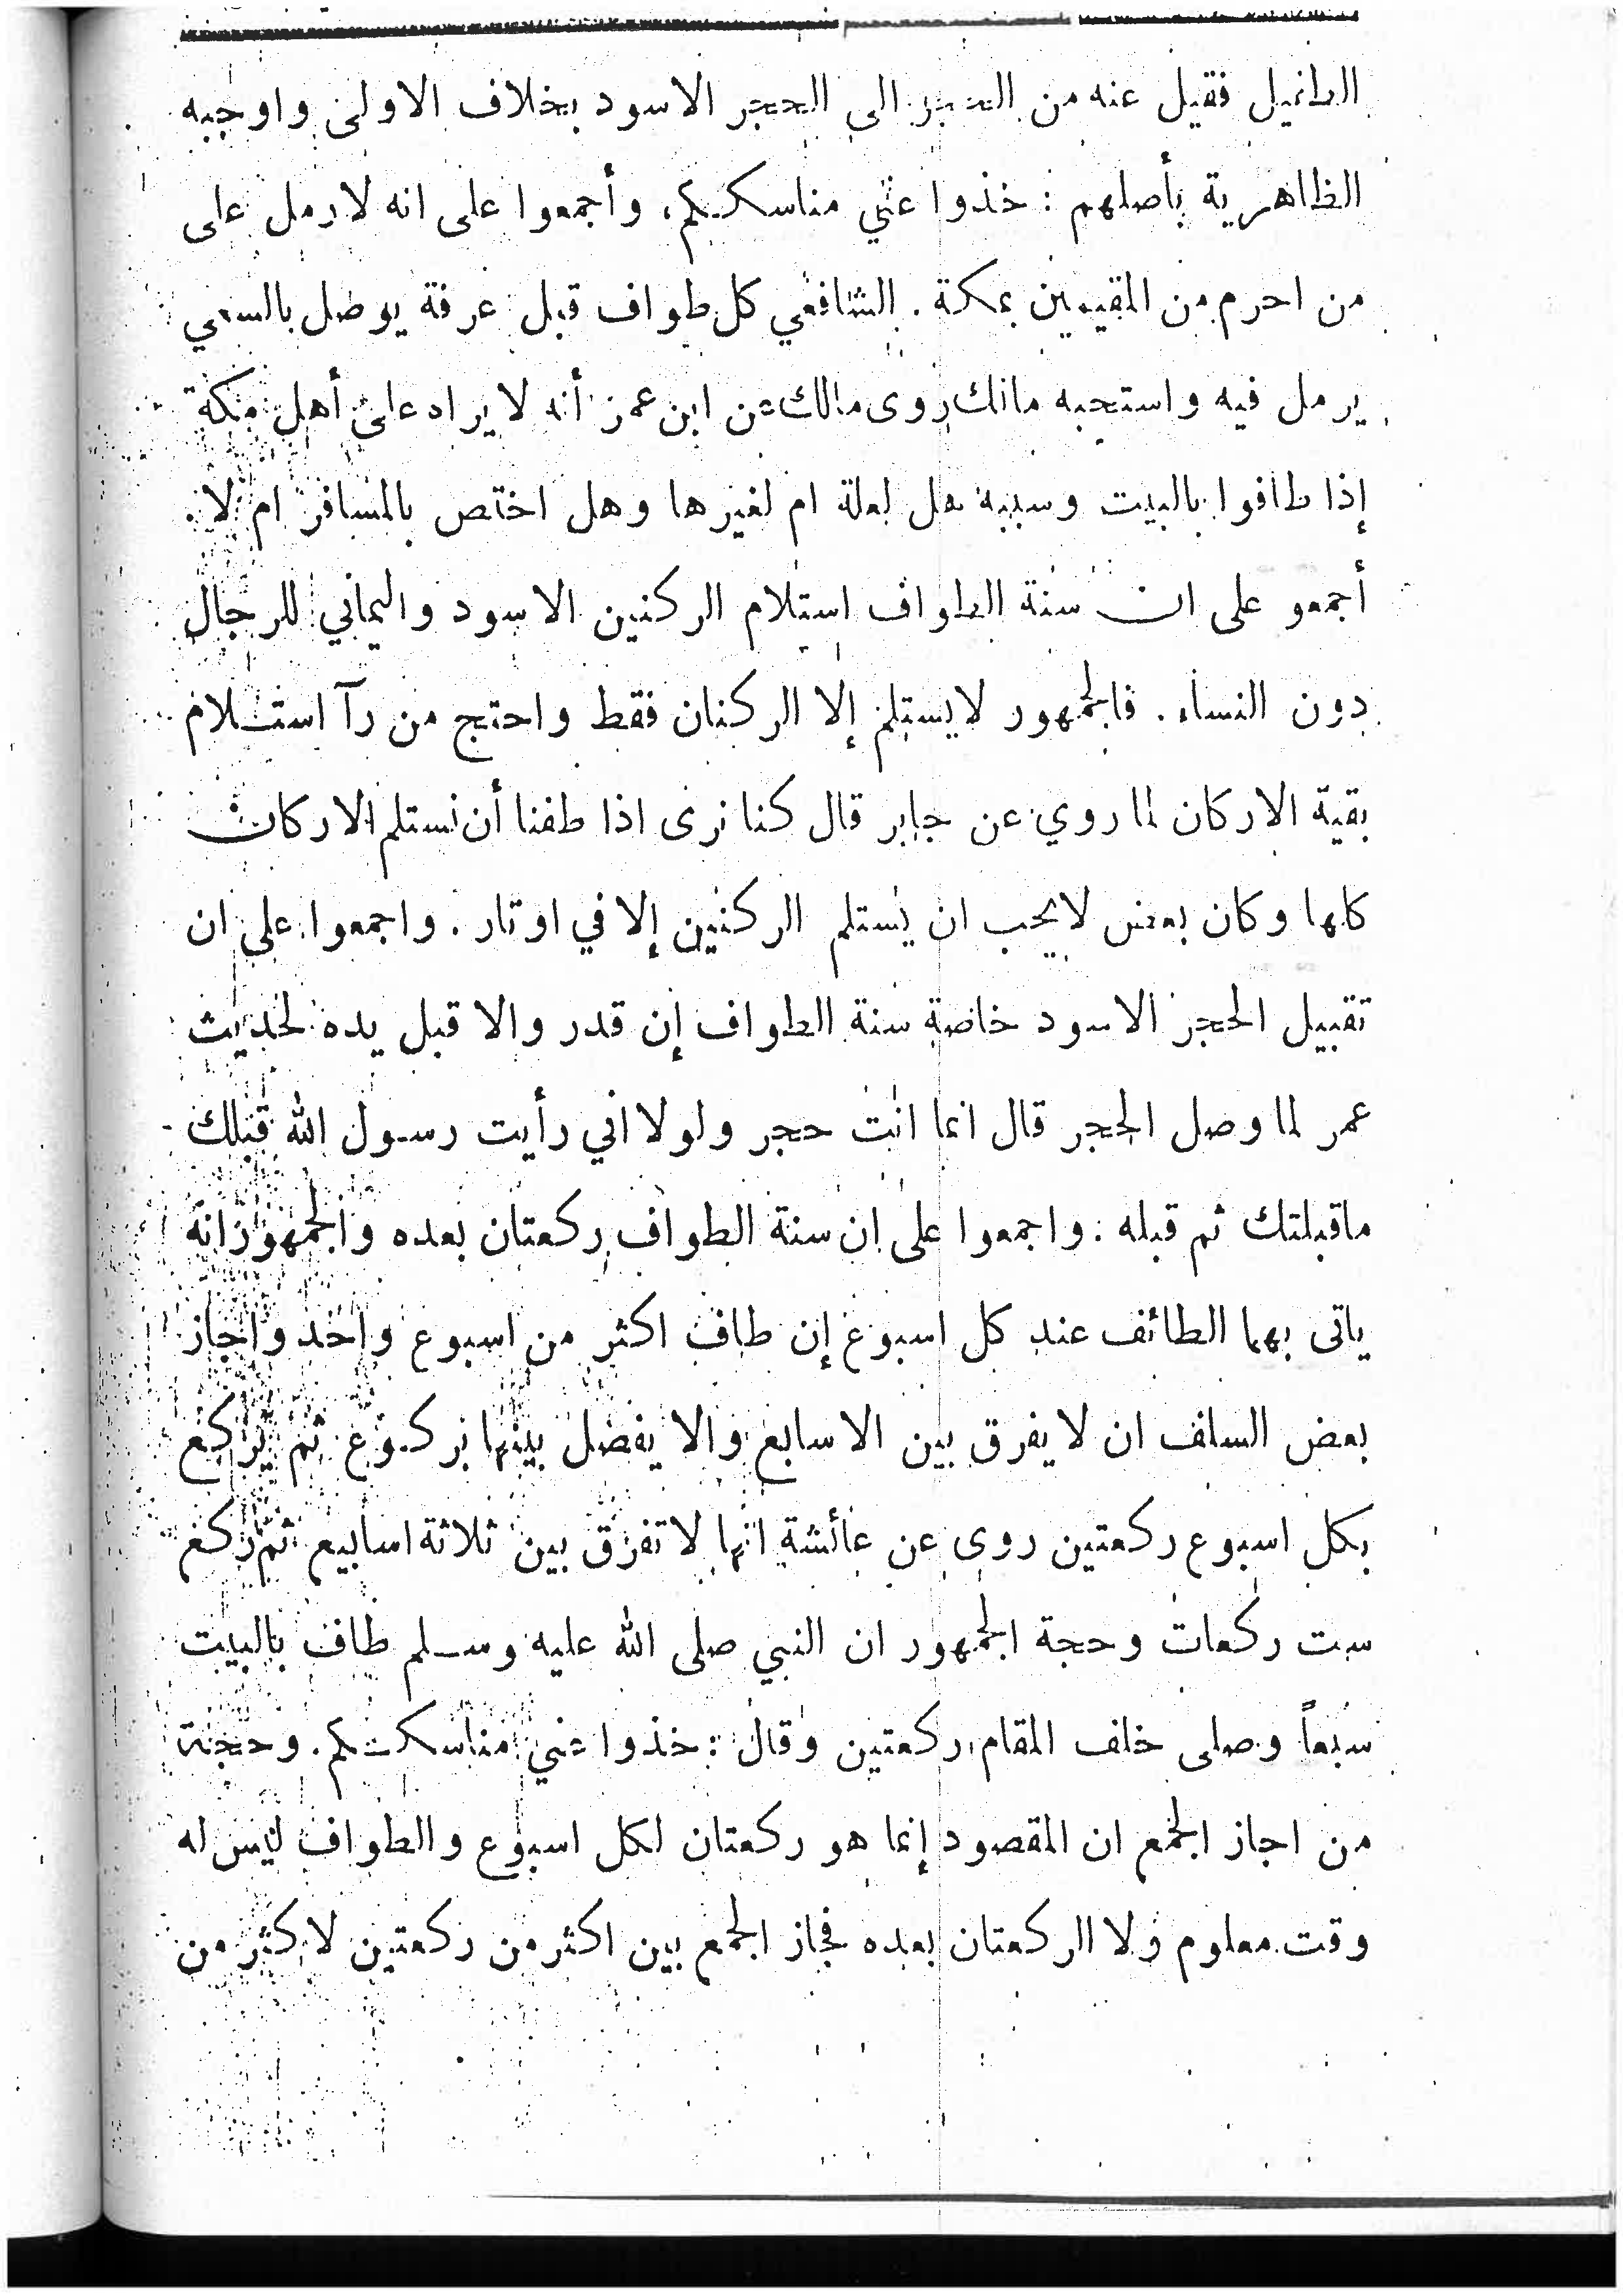 الطائيل فقيل عنه من الحجر الى الحجر الاسود بخلاف الاولى واوجبه
الظاهرية بأصلهم : خذوا عني مناسككم، وأجمعوا على انه لا رمل على
من احرم من المقيمين بمكة . الشافعي كل طواف قبل عرفة يوصل بالسعي
يرمل فيه واستحبه مالك روى مالك عن ابن عمر أنه لا يراه على أهل مكة
إذا طافوا بالبيت وسببه هل لعلة ام لغيرها وهل اختص بالمسافر ام لا .
أجمعو على ان سنة الطواف استلام الركنين الاسود واليماني للرجال
دون النساء . فالجمهور لا يستلم إلا الركنان فقط واحتج من رآ استلام
بقية الاركان لما روي عن جابر قال كنا نرى اذا طفنا أن نستلم الاركان
كلها وكان بعض لا يحب ان يستلم الركنين إلا في اوتار . واجمعوا على ان
تقبيل الحجر الاسود خاصة سنة الطواف إن قدر والا قبل يده لحديث
عمر لما وصل الحجر قال انما انت حجر ولولا اني رأيت رسول الله قبلك
ما قبلتك ثم قبله : واجمعوا على ان سنة الطواف ركعتان بعده والجمهور انه
ياتى بهما الطائف عند كل اسبوع إن طاف اكثر من اسبوع واحد واجاز
بعض السلف ان لا يفرق بين الاسابع والا يفصل بينها بركوع ثم يركع
بكل اسبوع ركعتين روى عن عائشة انها لا تفرق بين ثلاثة اسابيع ثم تركع
ست ركعات وحجة الجمهور ان النبي صلى الله عليه وسلم طاف بالبيت
سبعاً وصلى خلف المقام ركعتين وقال : خذوا عني مناسككم . وحجة
من اجاز الجمع ان المقصود إنما هو ركعتان لكل اسبوع والطواف ليس له
وقت معلوم ولا الركعتان بعده فجاز الجمع بين اكثر من ركعتين لاكثر من